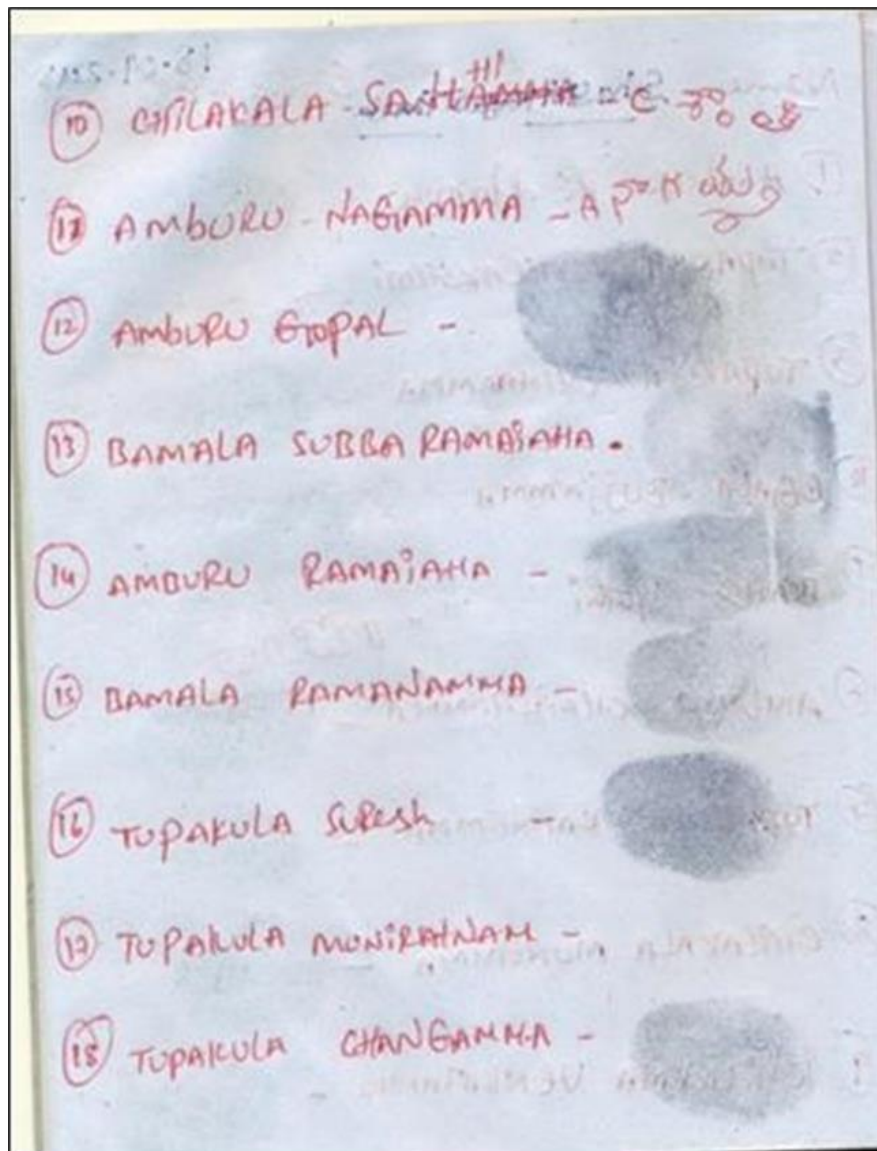 10 CHILAKALA -
11 AMBURU - NAGAMMA - A నాగమ్మ
12 AMBURU GOPAL -
13 BAMALA SUBBA RAMAIAHA .
14 AMBURU RAMAIAHA -
15 BAMALA RAMANAMMA -
16 TUPAKULA SURESH -
17 TUPAKULA MUNIRATNAM -
18 TUPAKULA CHANGAMMA -